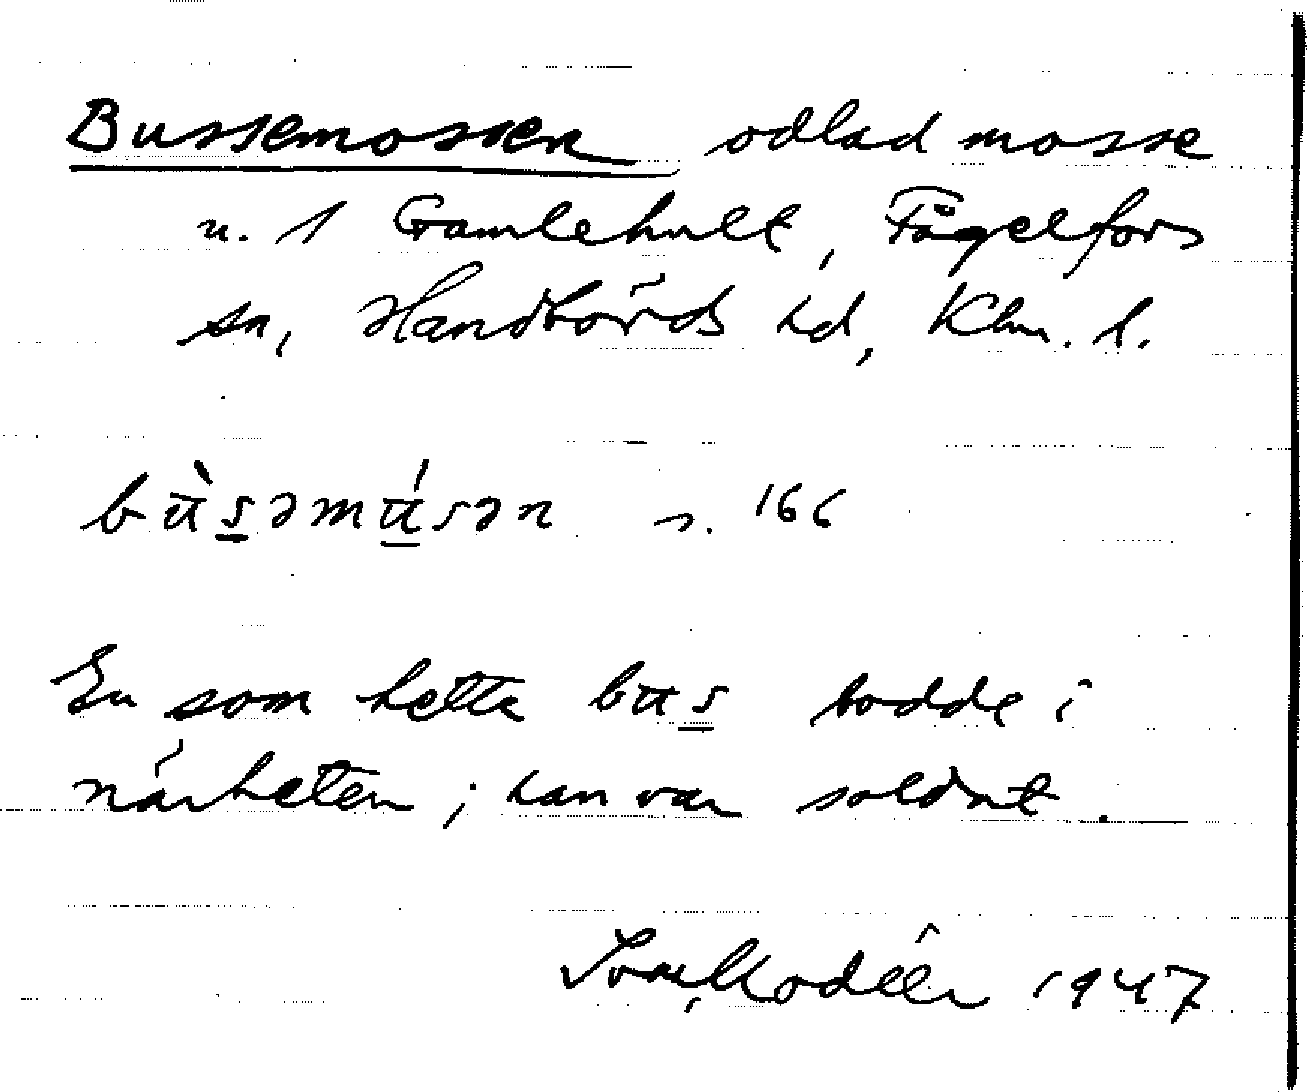 Bussemossen odlad mosse
n. 1 Gamlehult, Fågelfors
sn, Handbörds hd, Klm. l.
bu̇̀s̲əmú̲sən s. 166
En som hette bus̲ bodde i
närheten; han var soldat.
Ivar Modéer 1947